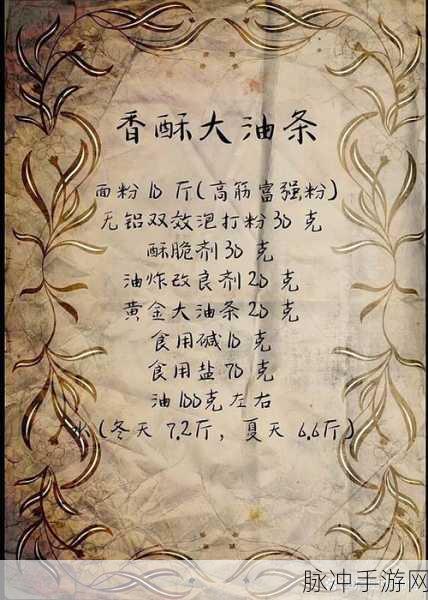 香酥大油条
面粉10斤(高筋富强粉)
无铝双效泡打粉30克
酥脆剂30克
油炸改良剂20克
黄金大油条20克
食用碱10克
食用盐70克
油100克左右
水(冬天 7.2斤, 夏天 6.6斤)
脉冲手游网